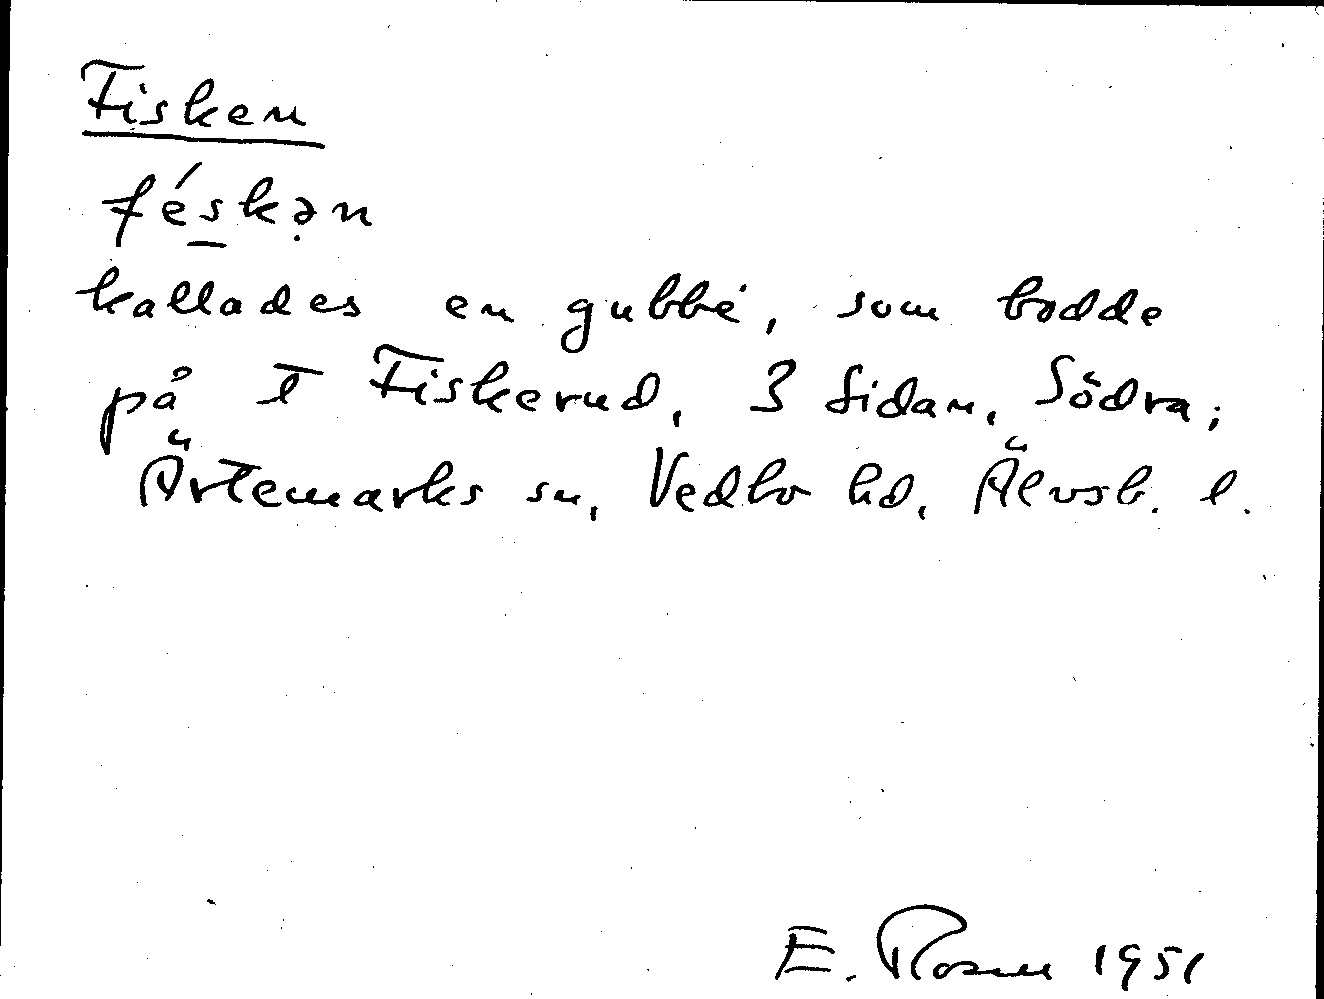 Fisken
féskən
kallades en gubbe, som bodde
på t Fiskerud, 3 Sidan, Södra;
Ärtemarks sn, Vedbo hd, Älvsb. l.
E. Rosell 1951